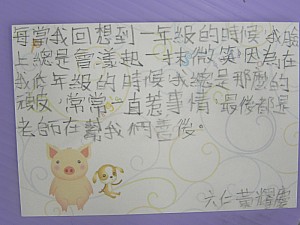 每當我回想到一年級的時候,我晚
上總是會漾起一抹微笑,因為在
我低年級的時候,我總是那麼的
頑皮,常常一直惹事情,最後都是
老師在幫我們善後。
六仁黃